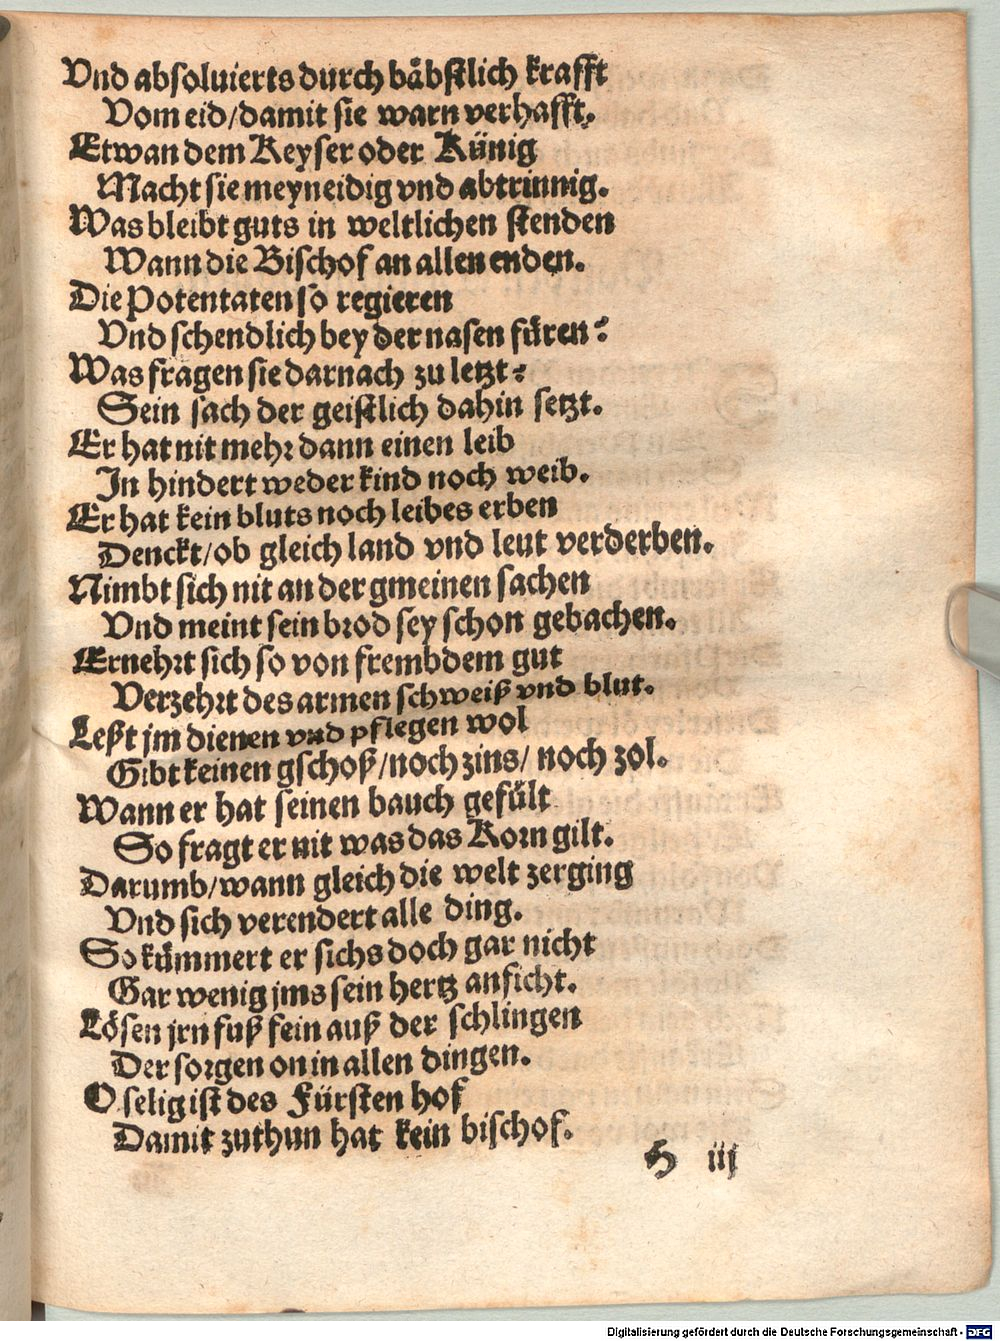 Vnd absoluierts durch bäbstlich krafft
Vom eid/damit sie warn verhafft.
Etwan dem Keyser oder Künig
Macht sie meyneidig vnd abtrinnig.
Was bleibt guts in weltlichen stenden
Wann die Bischof an allen enden.
Die Potentaten so regieren
Vnd schendlich bey der nasen füren?
Was fragen sie darnach zu letzt?
Sein sach der geistlich dahin setzt.
Er hat nit mehr dann einen leib
In hindert weder kind noch weib.
Er hat kein bluts noch leibes erben
Denckt/ob gleich land vnd leut verderben.
Nimbt sich nit an der gmeinen sachen
Vnd meint sein brod sey schon gebachen.
Ernehrt sich so von frembdem gut
Verzehrt des armen schweiß vnd blut.
Leßt jm dienen vnd pflegen wol
Gibt keinen gschoß/noch zins/ noch zol.
Wann er hat seinen bauch gefült
So fragt er nit was das Korn gilt.
Darumb/wann gleich die welt zerging
Vnd sich verendert alle ding.
So kümmert er sichs doch gar nicht
Gar wenig jms sein hertz anficht.
Lösen jrn fuß fein auß der schlingen
Der sorgen on in allen dingen.
O selig ist des Fürsten hof
Damit zuthun hat kein bischof.
H iij
Digitalisierung gefördert durch die Deutsche Forschungsgemeinschaft - DFG